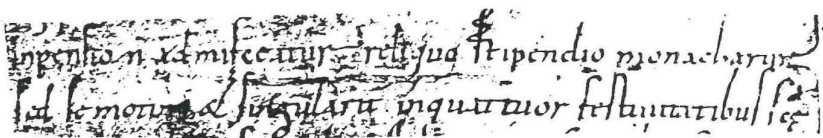 inpensio n admisceatur reliquo stipendio monacharum
sed semotim & singularit in quattuor festiuitatibus sce